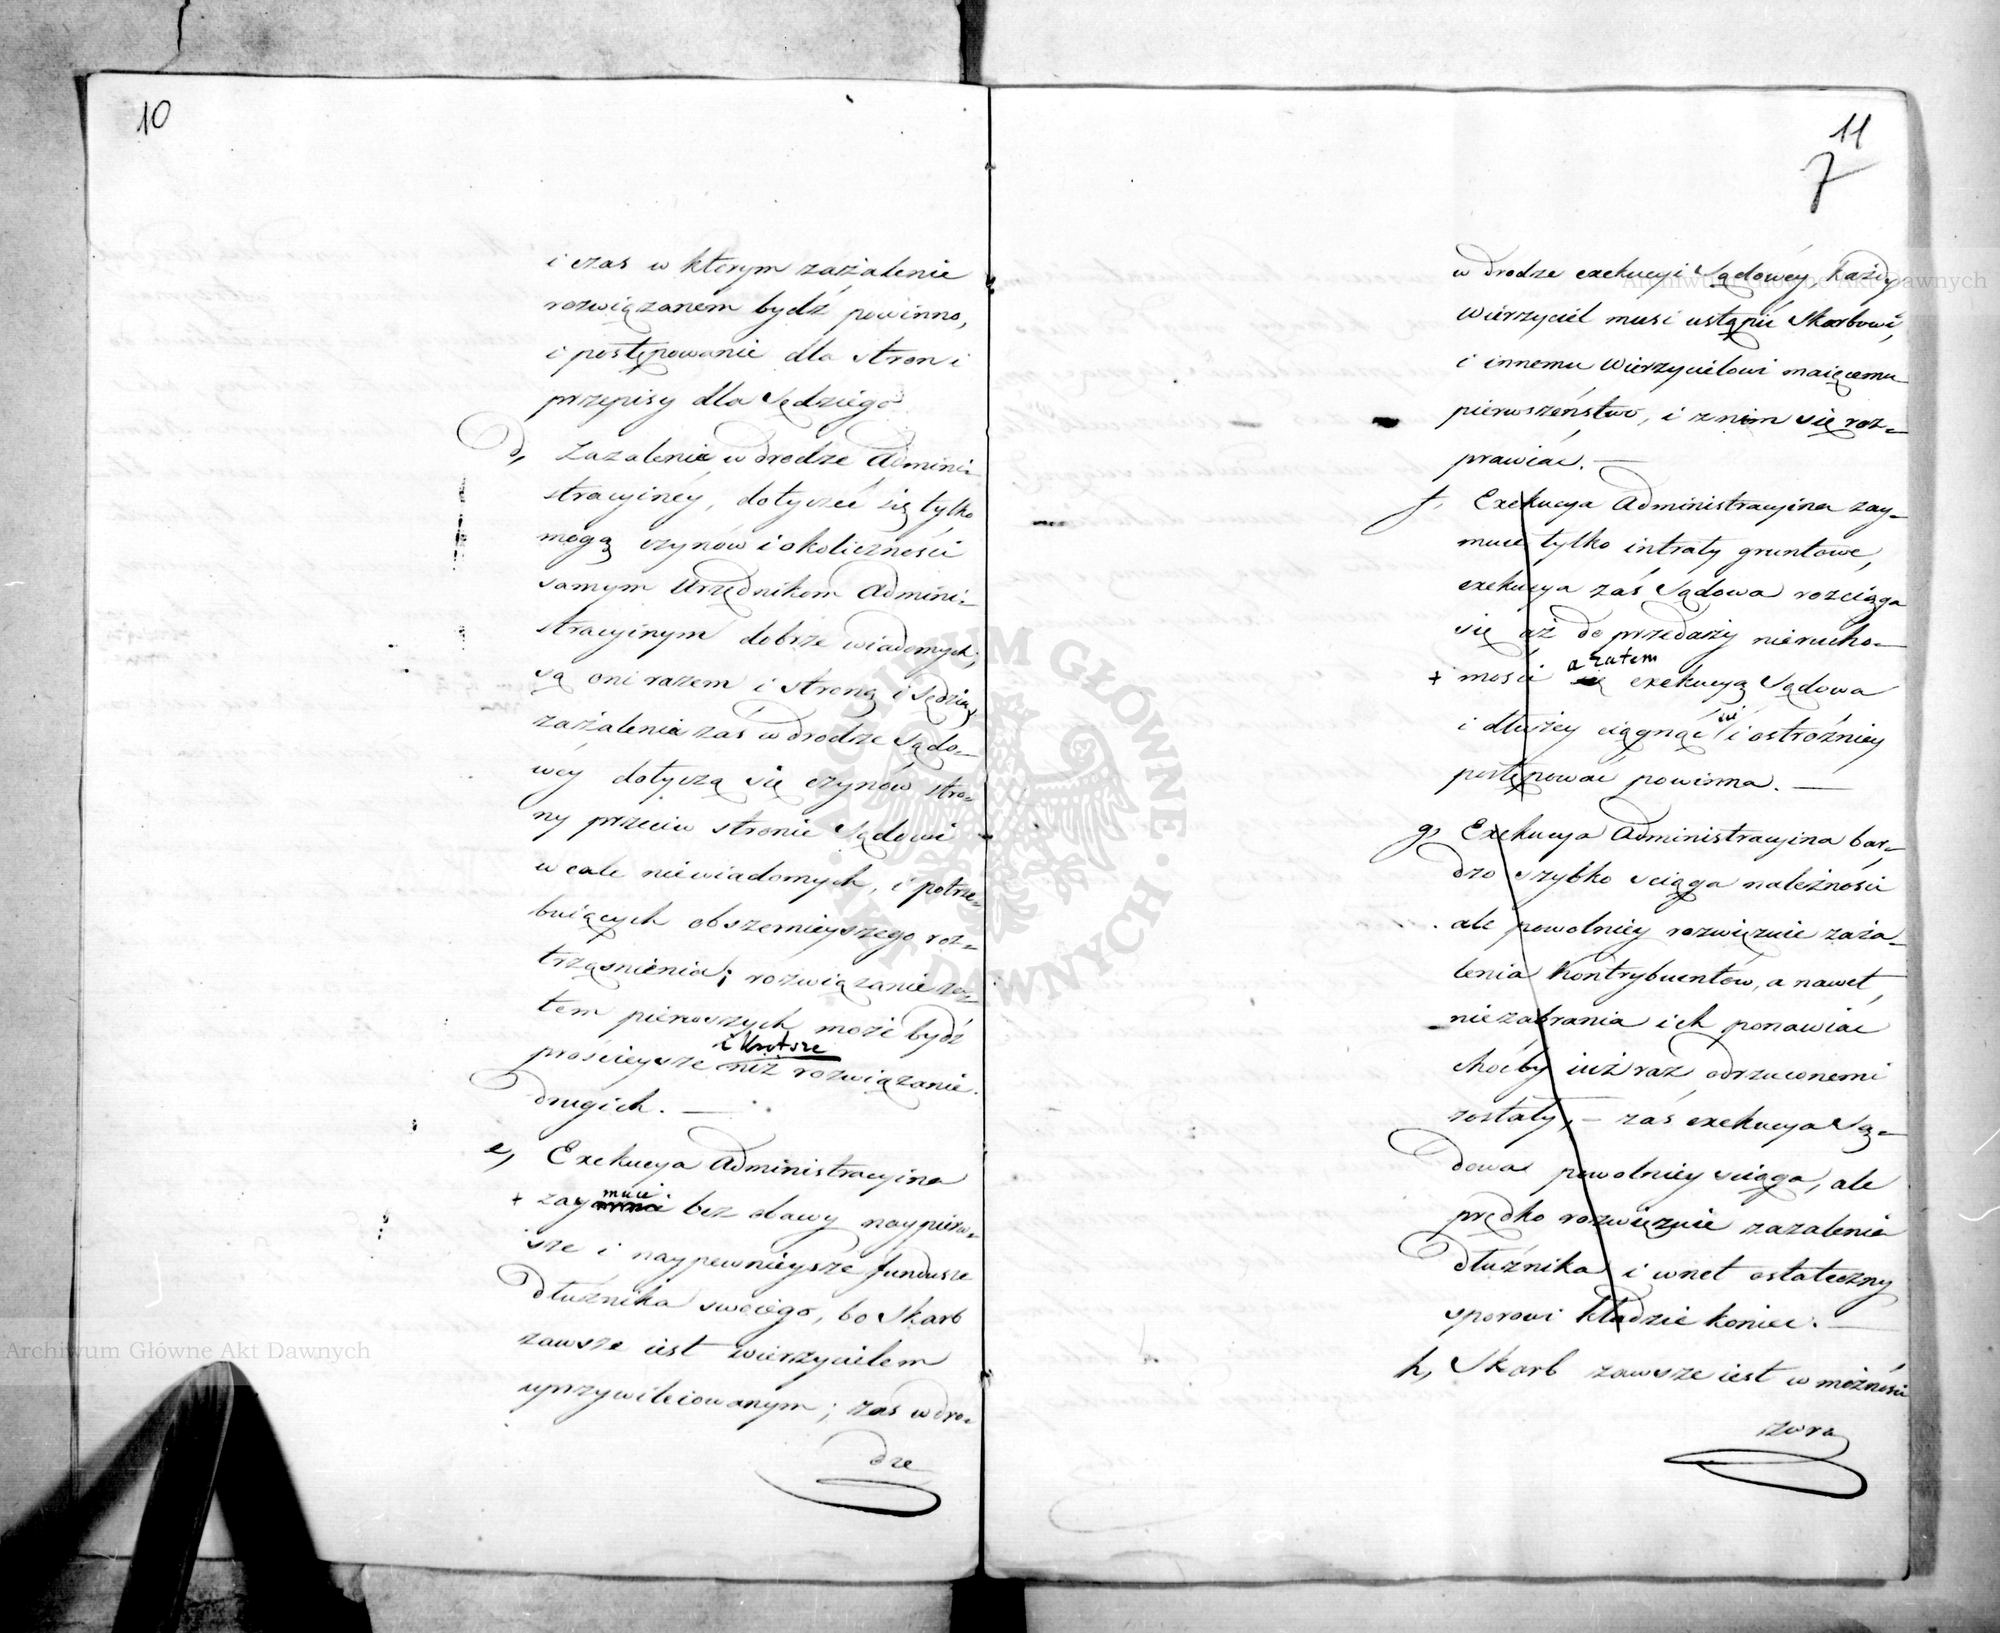 10
i czas w którym zażalenie
rozwiązanem bydź powinno,
i postępowanie dla stron i
przepisy dla Sędziego
d, Zażalenia w drodze Admini=
stracyinéy, dotyczeć się tylko
mogą czynów i okoliczności
samym Urzędnikom Admini=
stracyinym dobrze wiadomych,
są oni razem i stroną i Sędzią,
zażalenia zaś w drodze Sądo=
wey dotyczą się czynów stro=
ny przeciw stronie Sądowi
wcale niewiadomych, i potrze=
buiących obszernieyszego roz=
trząśnienia; rozwiązanie za=
tem pierwszych może bydź
i krótsze
prościeysze niż rozwiązanie
drugich. —
e, Exekucya Administracyina
muie
+ zay bez obawy naypierw=
sze i naypewnieysze fundusze
Dłużnika swoiego, bo Skarb
zawsze iest wierzycielem
uprzywileiowanym; zaś w dro=
dze
11
7
w drodze exekucyi Sądowéy każdy
Wierzyciel musi ustąpić Skarbowi,
i innemu Wierzycielowi maiącemu
pierwszeństwo, i z nim się roz=
prawiać. —
f, Exekucya Administracyina zay=
muie tylko intraty gruntowe,
exekucya zaś Sądowa rozciąga
się aż do przedaży nierucho=
a zatem
+ mości exekucyą Sądowa
się
i dłużey ciągnąć i ostrożniey
postępować powinna. —
g, Exekucya Administracyina bar=
dzo szybko ściąga należności
ale powolniey rozwiązuie zaża=
lenia Kontrybuentów, a nawet
niezabrania ich ponawiać
choćby iuż raz odrzuconemi
zostały, — zaś exekucya Są=
dowa powolniey ściąga, ale
prędko rozwiązuie zażalenia
Dłużnika i wnet ostateczny
sporowi kładzie koniec. —
h, Skarb zawsze iest w możności
zwra
Archiwum Główne Akt Dawnych
Archiwum Główne Akt Dawnych
ARCHIWUM GŁÓWNE · AKT DAWNYCH ·